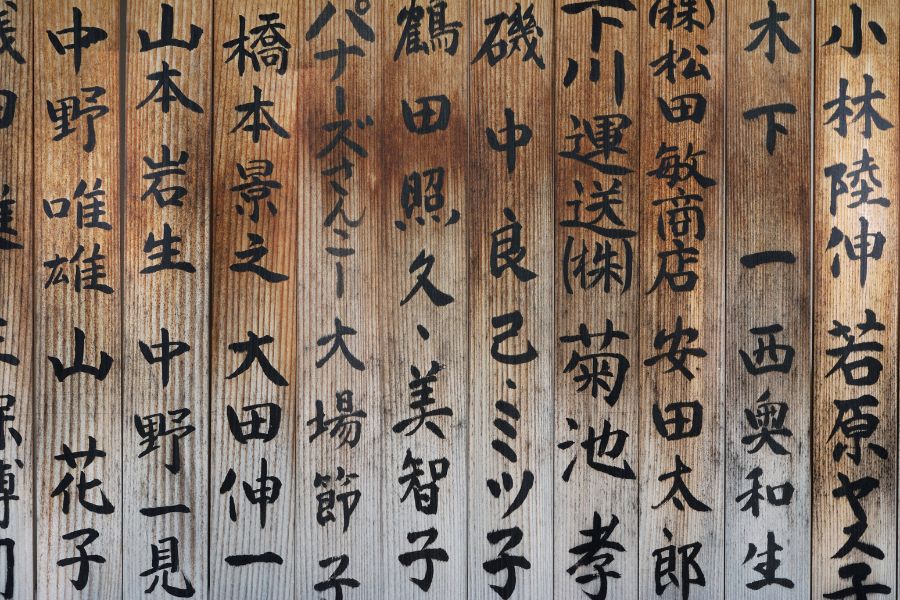 小林陸伸 若原ヤス子
木下 一 西奥和生
(株)松田敏商店 安田太郎
下川運送(株) 菊池 孝
磯 中良己、ミツ子
鶴田照久、美智子
パナーズさんこー 大場節子
橋本景之 大田伸一
山本岩生 中野一見
中野唯雄 山 花子